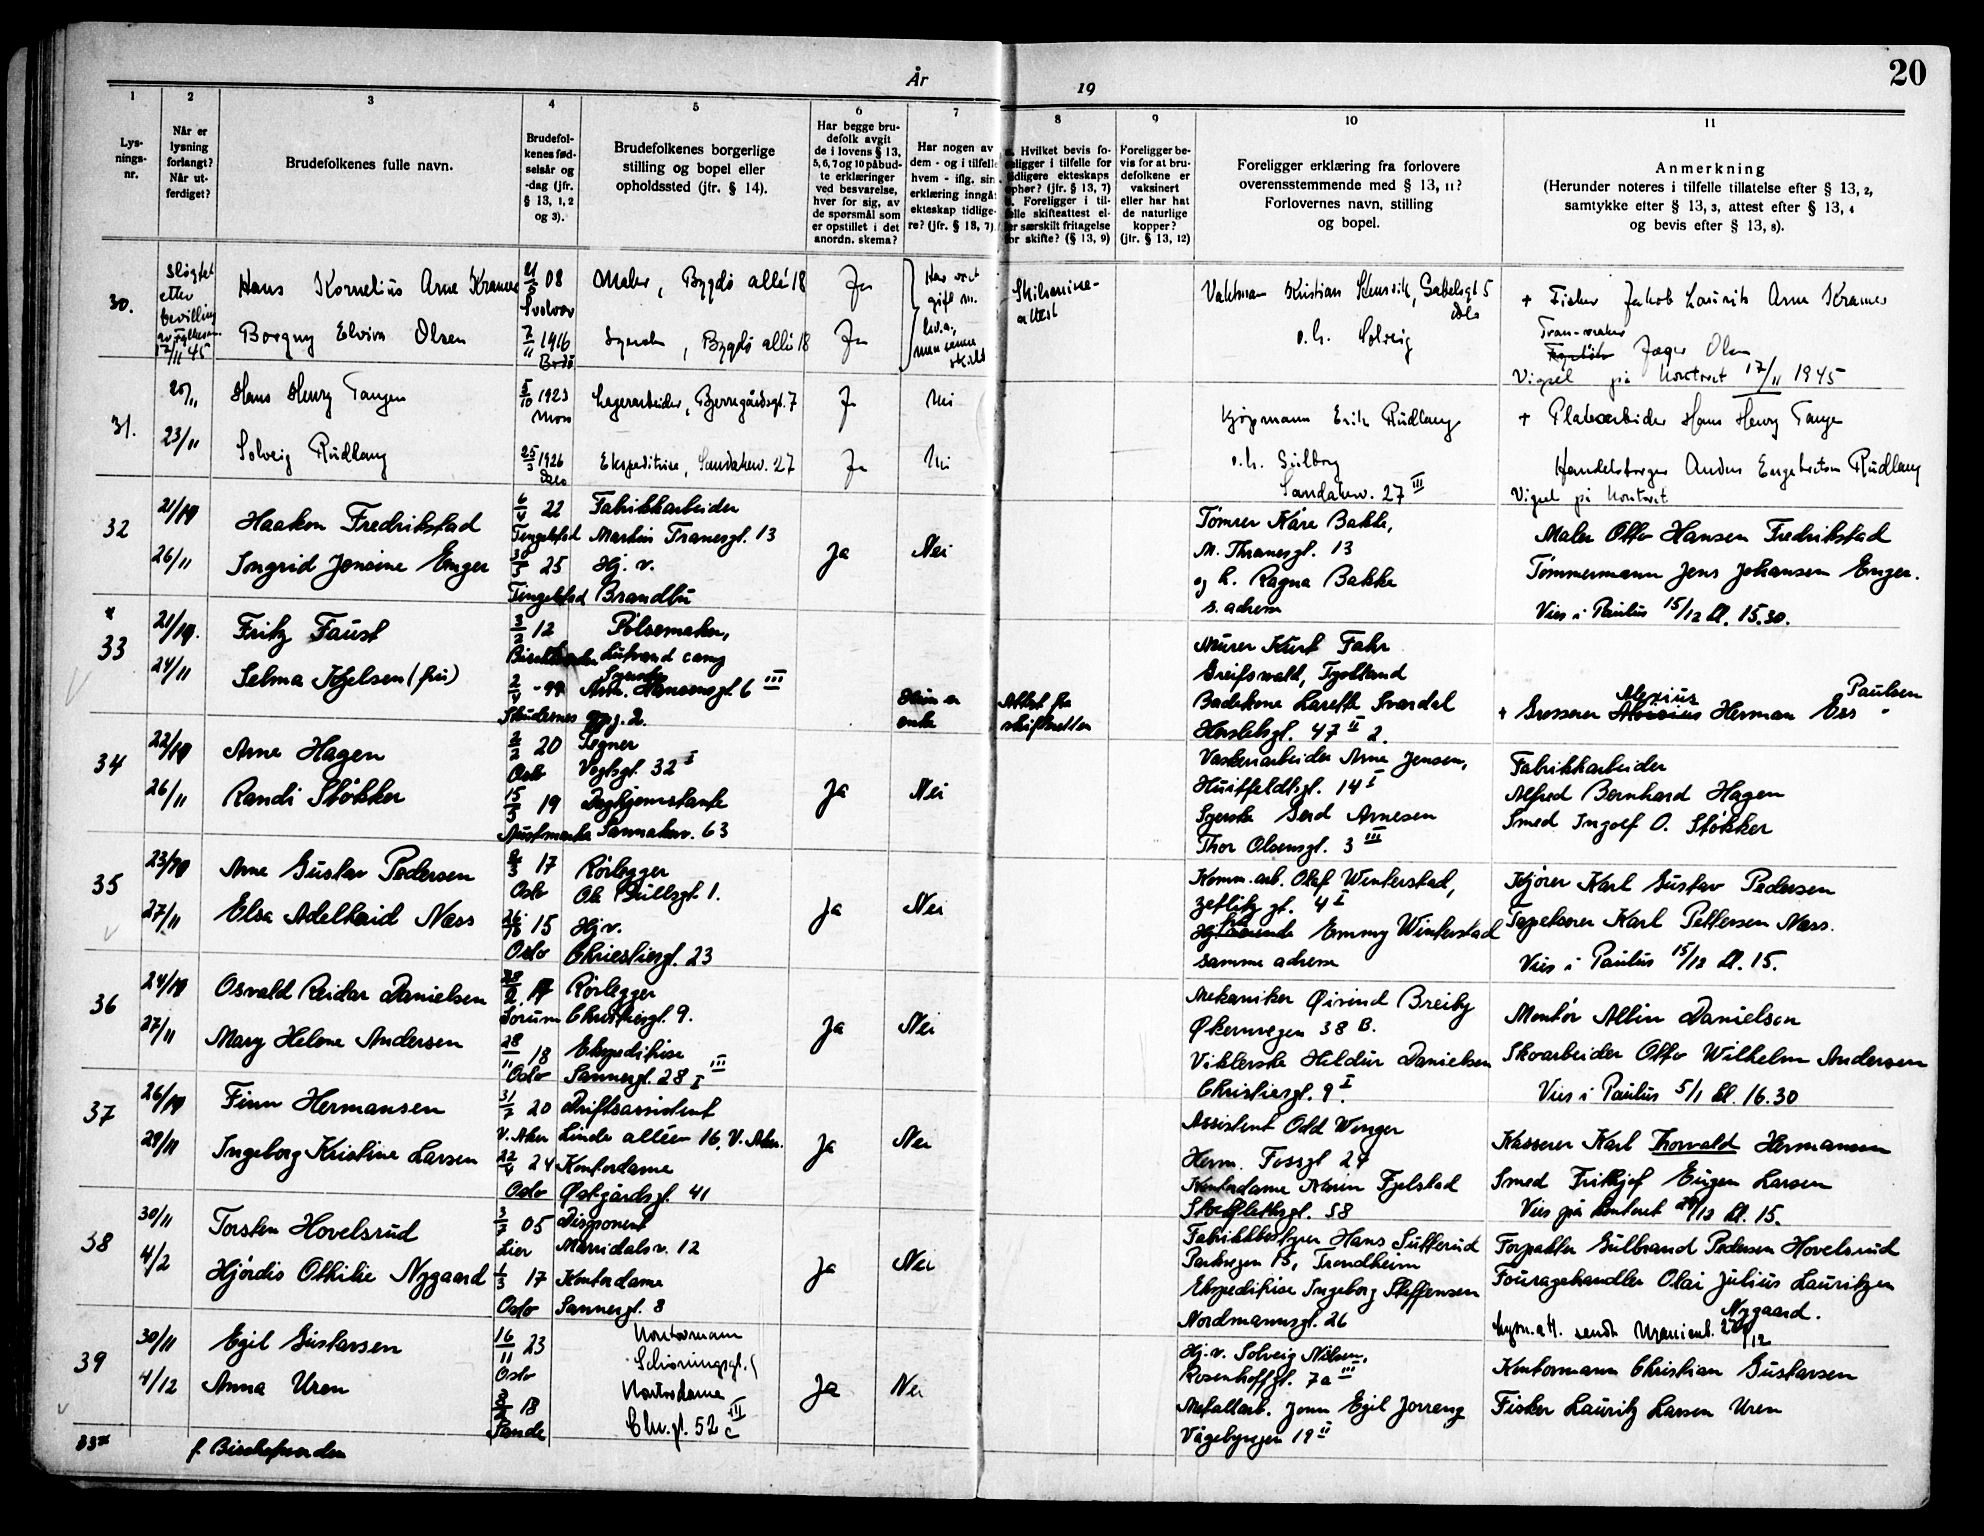 År
19
20
1
2
3
4
5
6
7
8
9
10
11
Lys-
nings-
nr.
Når er
lysning
forlangt?
Når ut-
ferdiget?
Brudefolkenes fulle navn.
Brudefol-
kenes fød-
selsår og
-dag (jfr.
§ 13, 1, 2
og 3).
Brudefolkenes borgerlige
stilling og bopel eller
opholdssted (jfr. § 14).
Har begge bru-
defolk avgit
de i lovens § 13,
5, 6, 7 og 10 påbud-
te erklæringer
ved besvarelse,
hver for sig, av
de spørsmål som
er opstillet i det
anordn. skema?
Har nogen av
dem - og i tilfelle
hvem - iflg. sin
erklæring inngå
ekteskap tidlige-
re? (jfr. § 18, 7)
Hvilket bevis fo-
religger i tilfelle for
tidligere ekteskaps
ophør? (jfr. § 13, 7)
Foreligger i til-
felle skifteattest el-
ler særskilt fritagelse
for skifte? (§ 13, 9)
Foreligger be-
vis for at bru-
defolkene er
vaksinert
eller har hat
de naturlige
kopper?
(jfr. § 13, 12)
Foreligger erklæring fra forlovere
overensstemmende med § 13, 11?
Forlovernes navn, stilling
og bopel.
Anmerkning
(Herunder noteres i tilfelle tillatelse efter § 13, 2,
samtykke efter § 13, 3, attest efter § 13, 4
og bevis efter § 13, 8).
30.
etter
bevilling
17/11 45
Hans Kornelius Arne Kramer
21/5 08
Svolvær
Maler, Bygdø allé 18
Ja
Har vært
gift m.
hv.a.,
men senere
skilt
Skilsmisse-
attest
Vaktmann Kristian Stensvik, Gabelsgt 5
Oslo
+ Fisker Jakob Laurits Arne Kramer
Borgny Elvira Olsen
7/11 1916
Bodø
Syerske, Bygdø allé 18
Ja
o.h. Solveig
Tran-vraker
Jæger Olsen
Vigsel på kontoret 17/11 1945
31.
20/11
Hans Henry Tangen
5/10 1923
Moss
Lagerarbeider, Bjerregårdsgt. 7
Ja
Nei
Kjøpmann Erik Rudlang
+ Platearbeider Hans Henry Tangen
23/11
Solveig Rudlang
25/3 1926
Oslo
Ekspeditrise, Sandakerv. 27
Ja
Nei
o.h. Gulborg
Sandakerv. 27 III
Handelsborger Anders Engebretsen Rudlang
Vigsel på kontoret
32
21/10
Haakon Fredrikstad
6/4 22
Tingelstad
Fabrikkarbeider
Martin Tranesgt. 13
Ja
Nei
Tømrer Kåre Bakke,
M. Thranesgt. 13
Maler Otto Hansen Fredrikstad
26/11
Ingrid Jensine Enger
30/5 25
Tingelstad
Hj. v.
Brandbu
og h. Ragna Bakke
s. adresse
Tømmermann Jens Johansen Enger.
Vies i Paulus 15/12 kl. 15.30.
*
33
21/10.
Fritz Faust
3/2 12
Pølsemaker,
Lutvand camp
Murer Kurt Fahr
Greifswald, Tyskland
24/11
Selma Kjelsen (fru)
2/4 - 99
Skudernes
Syerske
Arb. Hansensgt 6 III
oppg. 2.
Hun er
enke
Attest fra
skifteretten
Badekone Larette Svardal
Herslebsgt. 47 II 2.
+ Grosserer Alexius Herman Ess Paulsen
34
22/10
Arne Hagen
2/2 20
Oslo
Tegner
Vogtsgt. 32 I
Ja
Nei
Verksarbeider Arne Jensen,
Huitfeldtsgt. 14 I
Fabrikkarbeider
Alfred Bernhard Hagen
26/11
Randi Støkker
15/5 19
Austmarka
Daghjemstante
Sannakerv. 63
Syerske Gerd Arnesen
Thor Olsensgt. 3 III
Smed Ingolf O. Støkker
35
23/10
Arne Gustav Pedersen
2/3 17
Oslo
Rørlegger
Ole Bullsgt. 1.
Ja
Nei
Komm.arb. Olaf Winterstad,
Zetlitz gt. 4 I
Kjører Karl Gustav Pedersen
27/11
Elsa Adelheid Næss
26/10 15
Oslo
Hj.v.
Christiesgt. 23
Emmy Winterstad
samme adresse
Tapetserer Karl Pettersen Næss.
Vies i Paulus 15/12 kl. 15.
36
24/10
Osvald Reidar Danielsen
28/2. 17
Sørum
Rørlegger
Christiesgt. 9.
Ja
Nei
Mekaniker Øivind Breiby
Økernvegen 38 B.
Montør Albin Danielsen
27/11
Mary Helene Andersen
28/11 18
Oslo
Ekspeditrise
Sannergt. 28 I III
Viklerske Hildur Danielsen
Christiesgt. 9 I.
Skoarbeider Otto Wilhelm Andersen
Vies i Paulus 5/1 kl. 16.30
37
26/10
Finn Hermansen
31/7 20
V. Aker
Driftsassistent
Linde alléen 16, V. Aker.
Ja
Nei
Assistent Odd Wenger
Herm. Fossgt 24
Kasserer Karl Thorvald Hermansen
29/11
Ingeborg Kristine Larsen
22/4 24
Oslo
Kontordame
Østgårdsgt. 41
Kontordame Karin Fjelstad
58
Smed Frithjof Eugen Larsen
Vies på kontoret /12 kl. 15.
38
30/11
Torsten Hovelsrud
3/3 05
Lier
Disponent
Maridalsv. 12
Ja
Nei
Fabrikkbestyrer Hans Sutterud
Parkvegen 15, Trondheim
Forpakter Gulbrand Pedersen Hovelsrud
4/2
Hjørdis Othilie Nygaard
1/3 17
Oslo
Kontordame
Sannergt. 8
Ekspeditrise Ingeborg Steffensen
Nordmannsgt. 26
Fouragehandler Olai Julius Lauritzen
Nygaard.
Lysn.att. sendt Uranienb. 27/12
39
30/11
Egil Gustavsen
16/11 23
Oslo
Kontormann
Schøningsgt.
Ja
Nei
Hj.v. Solveig Nilsen,
Rosenhoffgt. 7a III
Kontormann Christian Gustavsen
4/12
Anna Uren
18
Sande
Kontordame
Chr.gt. 52 c III
Metallarb. John Egil Jorreng
Vågebyvgen 19 II
Fisker Lauritz Larsen Uren
33*
f. Bischofswerder